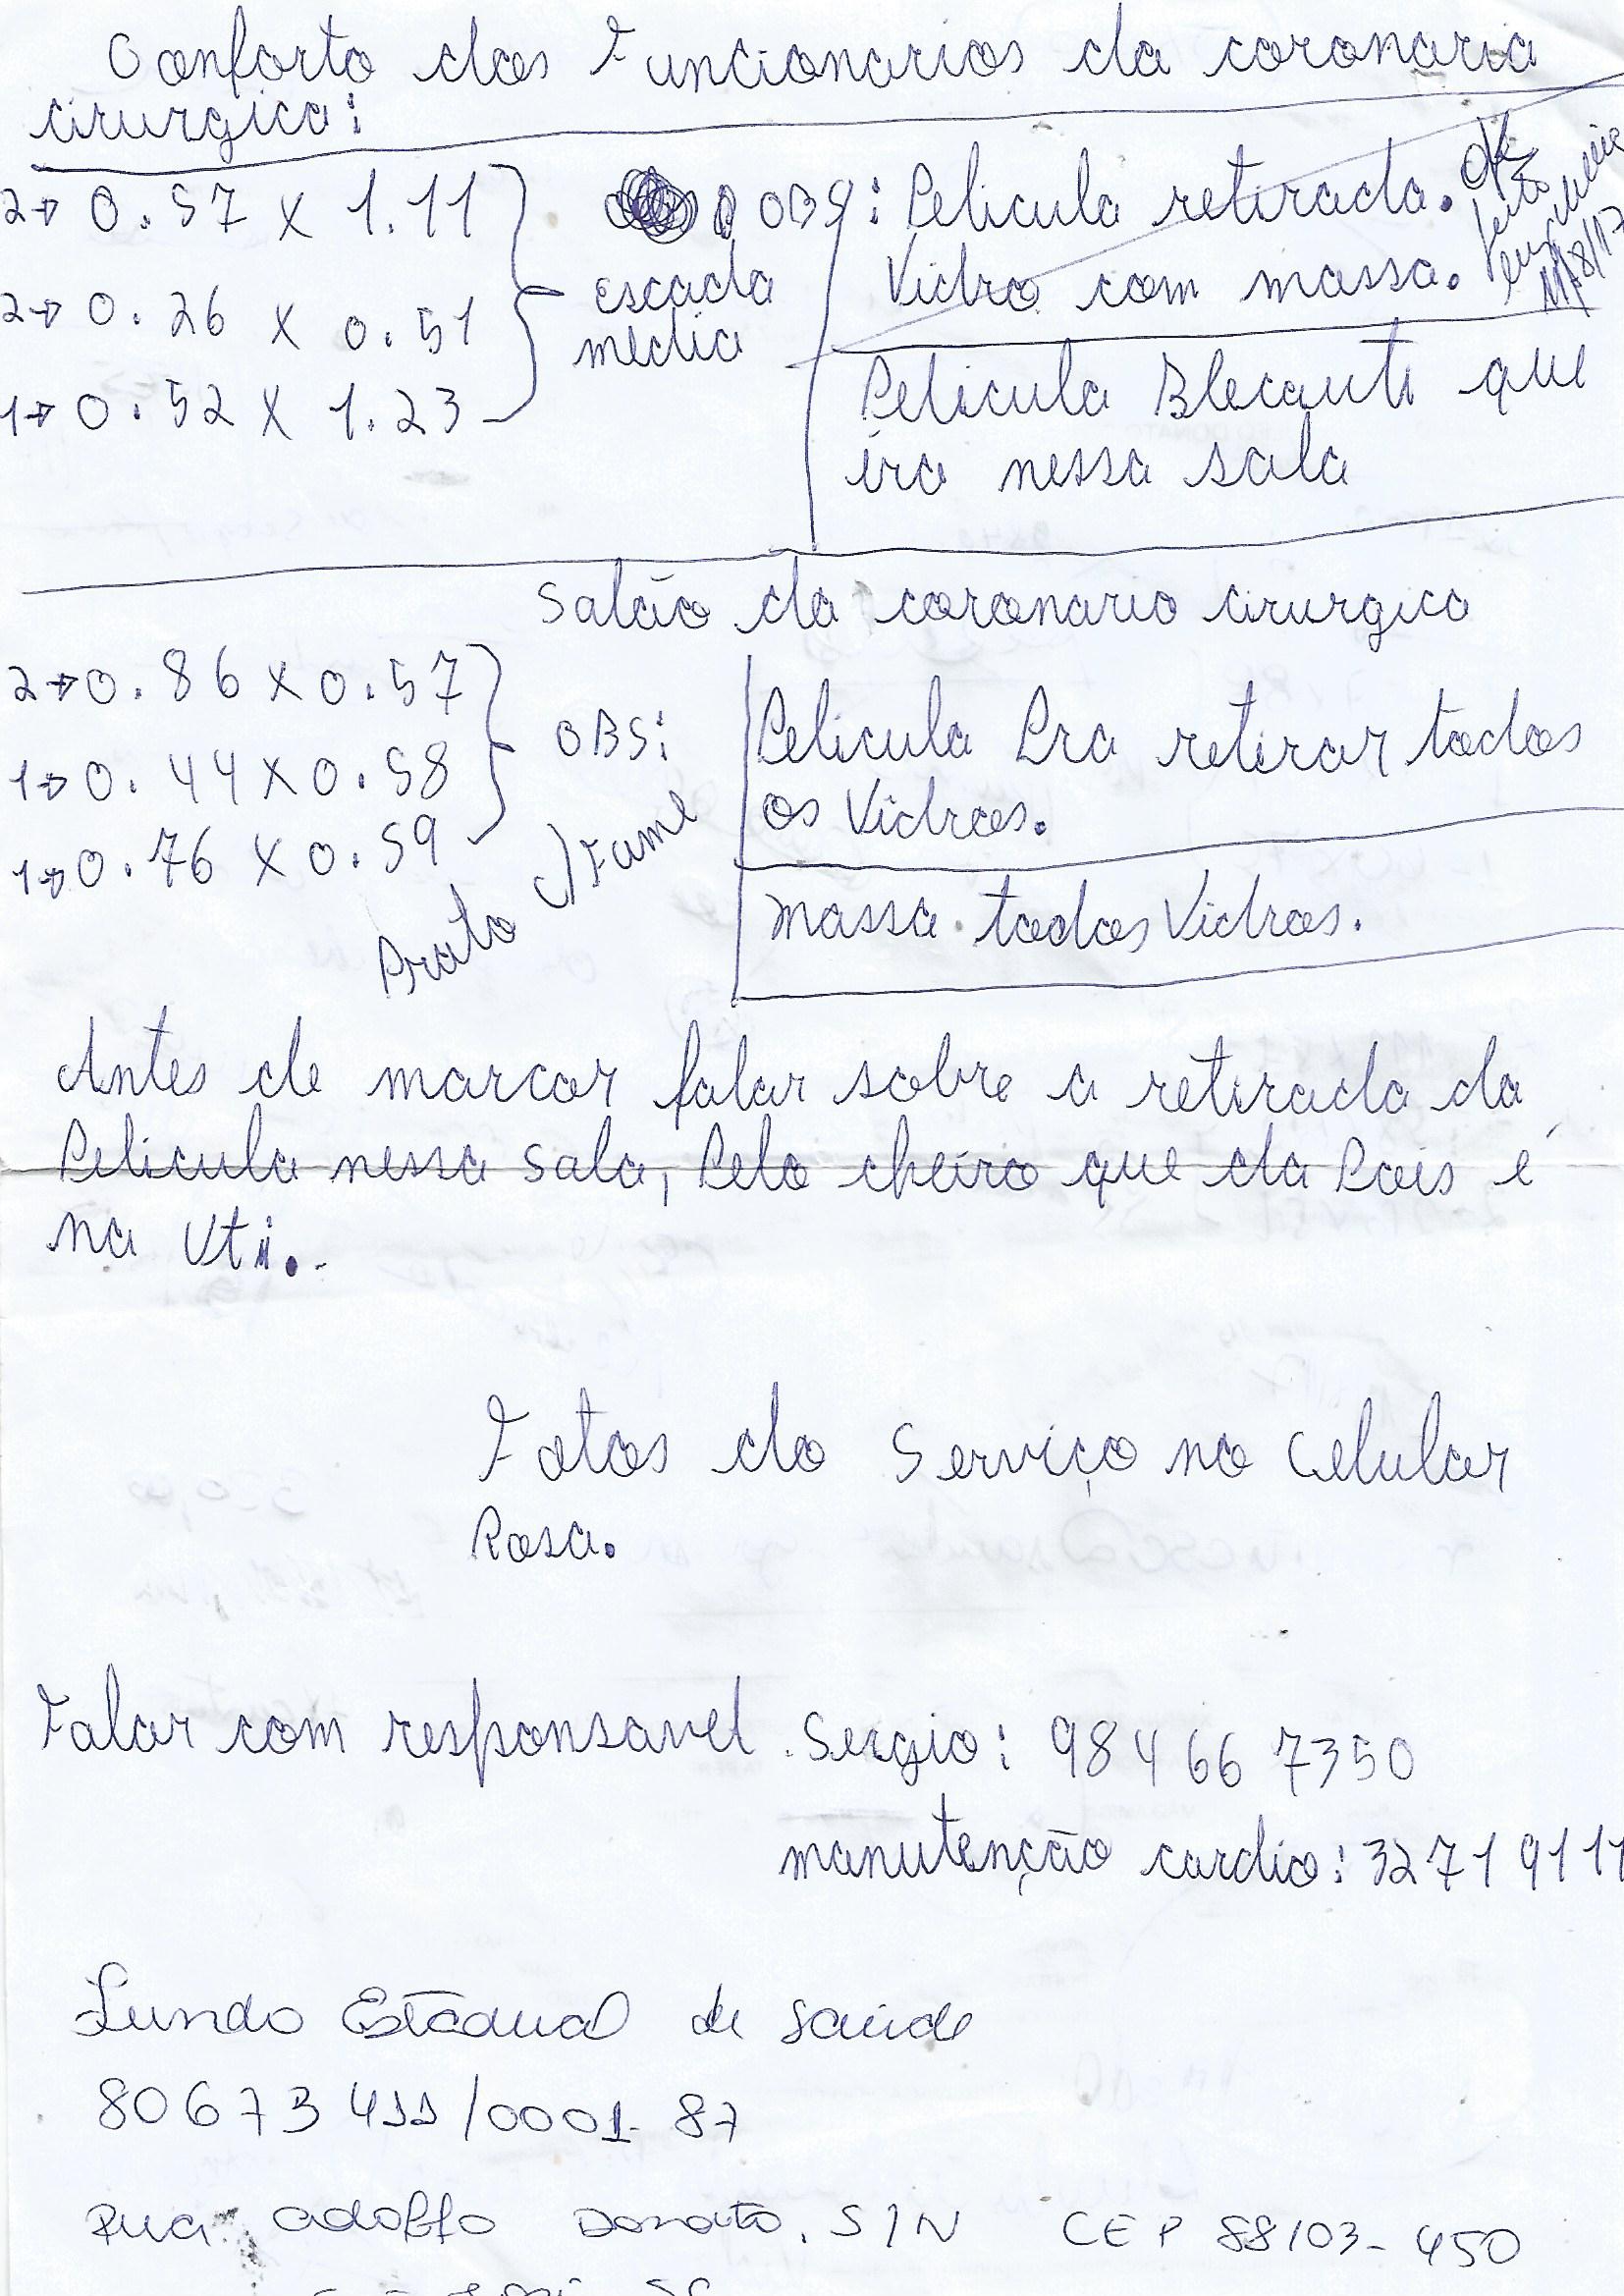 Conforto dos Funcionarios da coronaria
cirurgica:
2→ 0.57 x 1.11
2→ 0.26 x 0.51
1→ 0.52 x 1.23
escada
media
OBS: Pelicula retirada.
Vidro com massa.
OK
feito
11/8/17
Pelicula Blecaute que
ira nessa sala
Salão da coronario cirurgica
2→0.86 x 0.57
1→0.44 x 0.58
1→0.76 x 0.59
OBS:
Prata c/ Fume
Pelicula Pra retirar todos
os Vidros.
massa todos Vidros.
Antes de marcar falar sobre a retirada da
Pelicula nessa Sala, Pelo cheiro que da Pois é
na Uti.
Fotos do Serviço no Celular
Rosa.
Falar com responsavel Sergio: 98466 7350
manutenção cardio: 3271 9111
Fundo Estadual de Saúde
80673411/0001-87
Rua Adolfo Donato, S/N CEP 88103-450